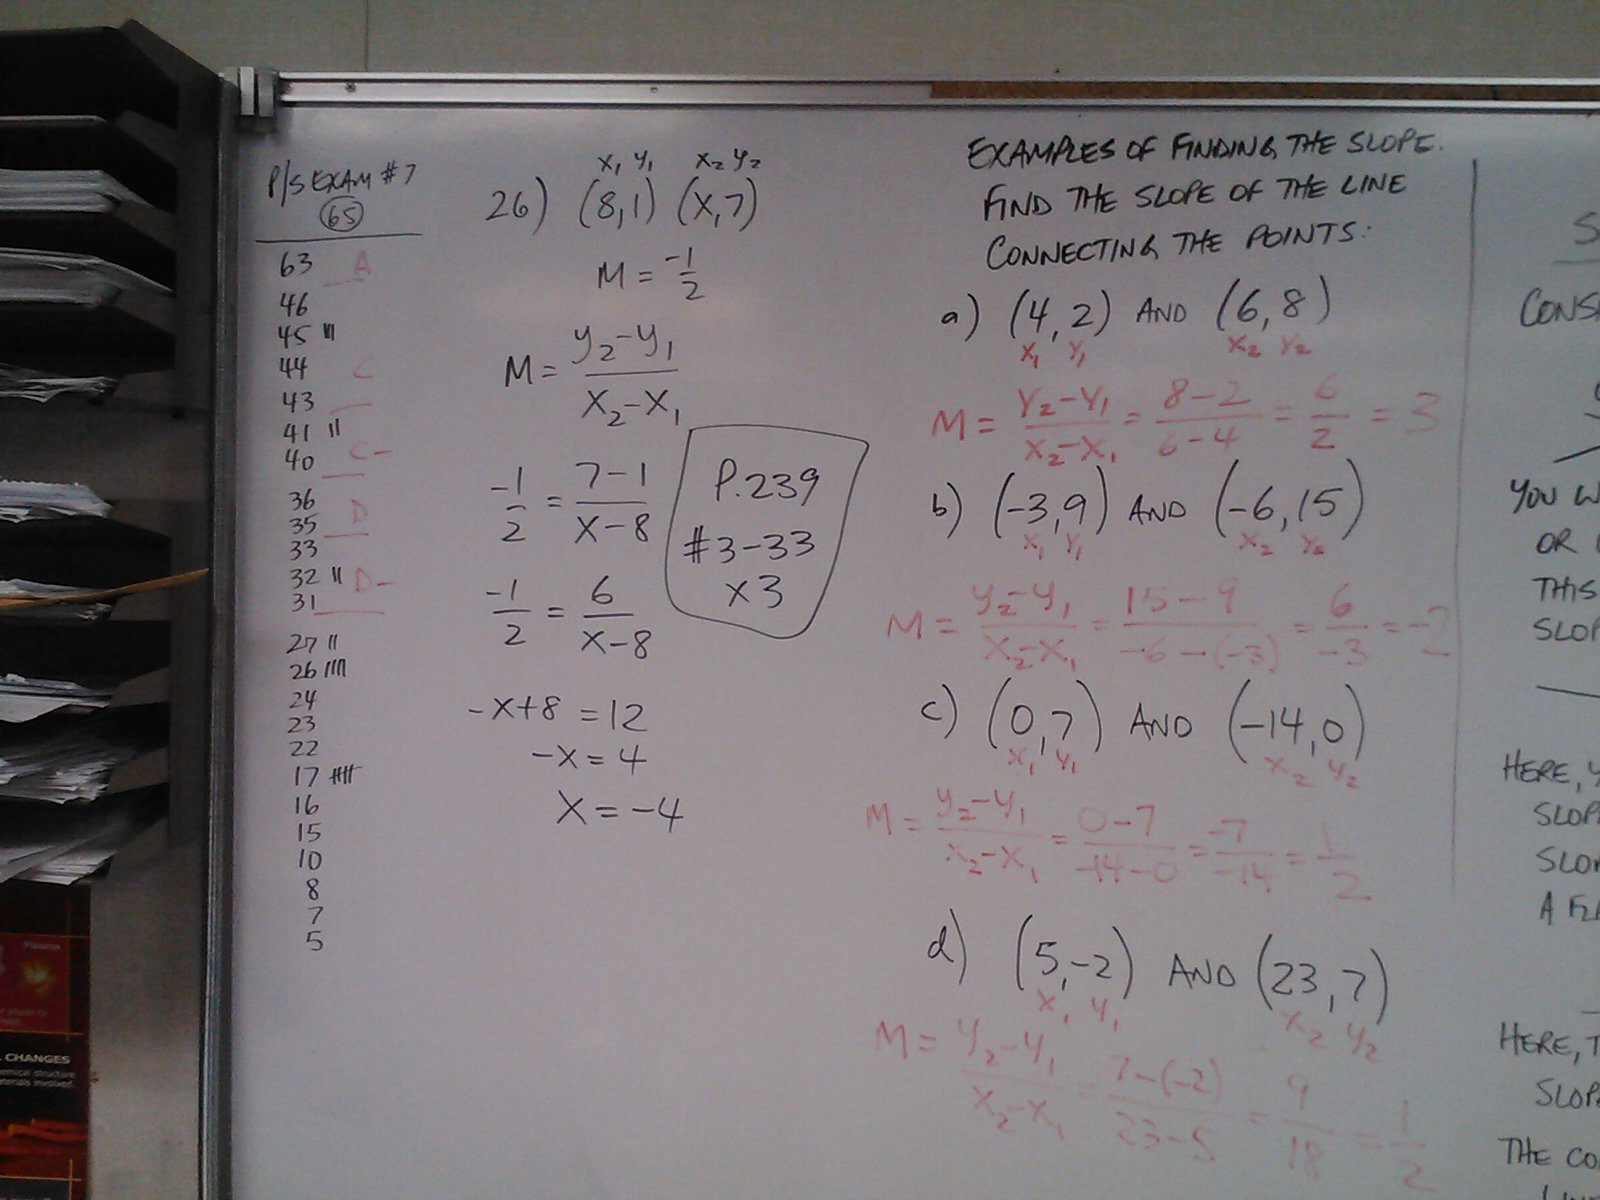 P/S EXAM #7
65
63 A
46
45 III
44 C
43
41 II
40 C-
36 D
35
33
32 II D-
31
27 II
26 IIII
24
23
22
17 IIII
16
15
10
8
7
5
x₁ y₁ x₂ y₂
26) (8,1) (x,7)
M = -1/2
M = y₂-y₁/x₂-x₁
-1/2 = 7-1/x-8
-1/2 = 6/x-8
-x+8 = 12
-x = 4
x = -4
P.239
#3-33
x3
EXAMPLES OF FINDING THE SLOPE.
FIND THE SLOPE OF THE LINE
CONNECTING THE POINTS:
a) (4,2) AND (6,8)
x₁ y₁ x₂ y₂
M = y₂-y₁/x₂-x₁ = 8-2/6-4 = 6/2 = 3
b) (-3,9) AND (-6,15)
x₁ y₁ x₂ y₂
M = y₂-y₁/x₂-x₁ = 15-9/-6-(-3) = 6/-3 = -2
c) (0,7) AND (-14,0)
x₁ y₁ x₂ y₂
M = y₂-y₁/x₂-x₁ = 0-7/-14-0 = -7/-14 = 1/2
d) (5,-2) AND (23,7)
x₁ y₁ x₂ y₂
M = y₂-y₁/x₂-x₁ = 7-(-2)/23-5 = 9/18 = 1/2
YOU W
OR
THIS
SLOP
HERE, Y
SLOP
SLO
A FL
HERE, T
SLOP
THE CO
CHANGES